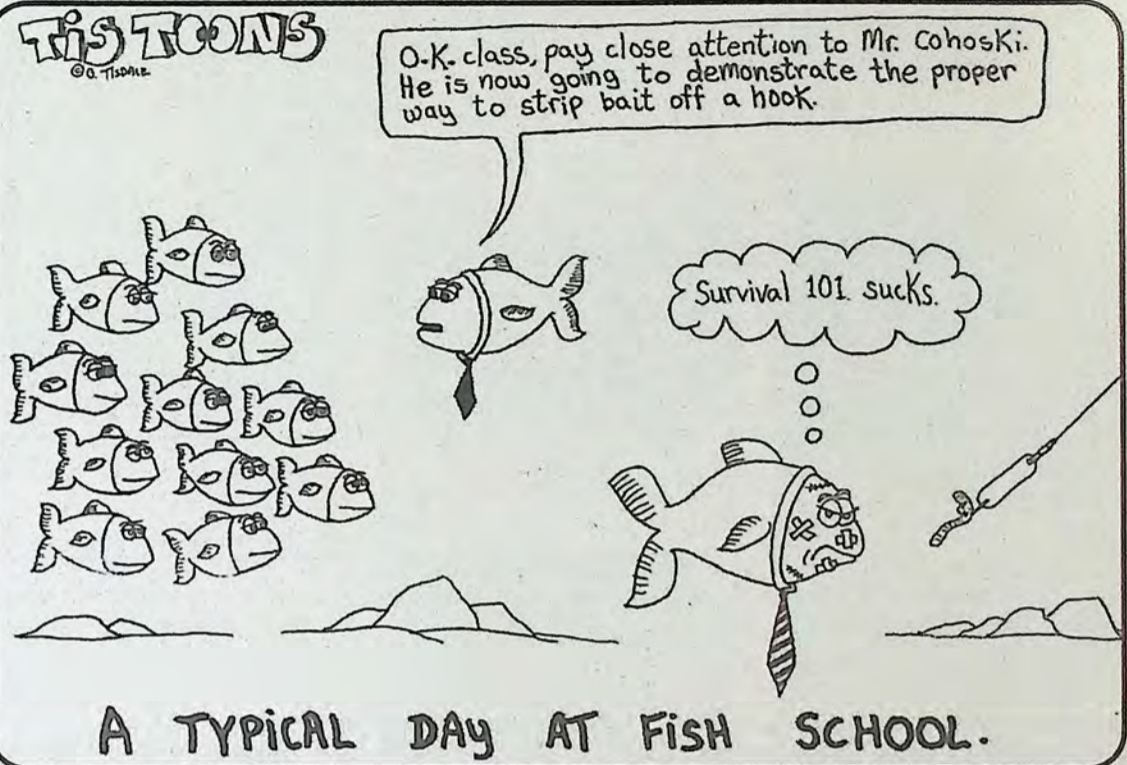 TiS TOONS
© O. TISDALE
O.K. class, pay close attention to Mr. Cohoski.
He is now going to demonstrate the proper
way to strip bait off a hook.
Survival 101 sucks.
A TYPICAL DAY AT FiSH SCHOOL.